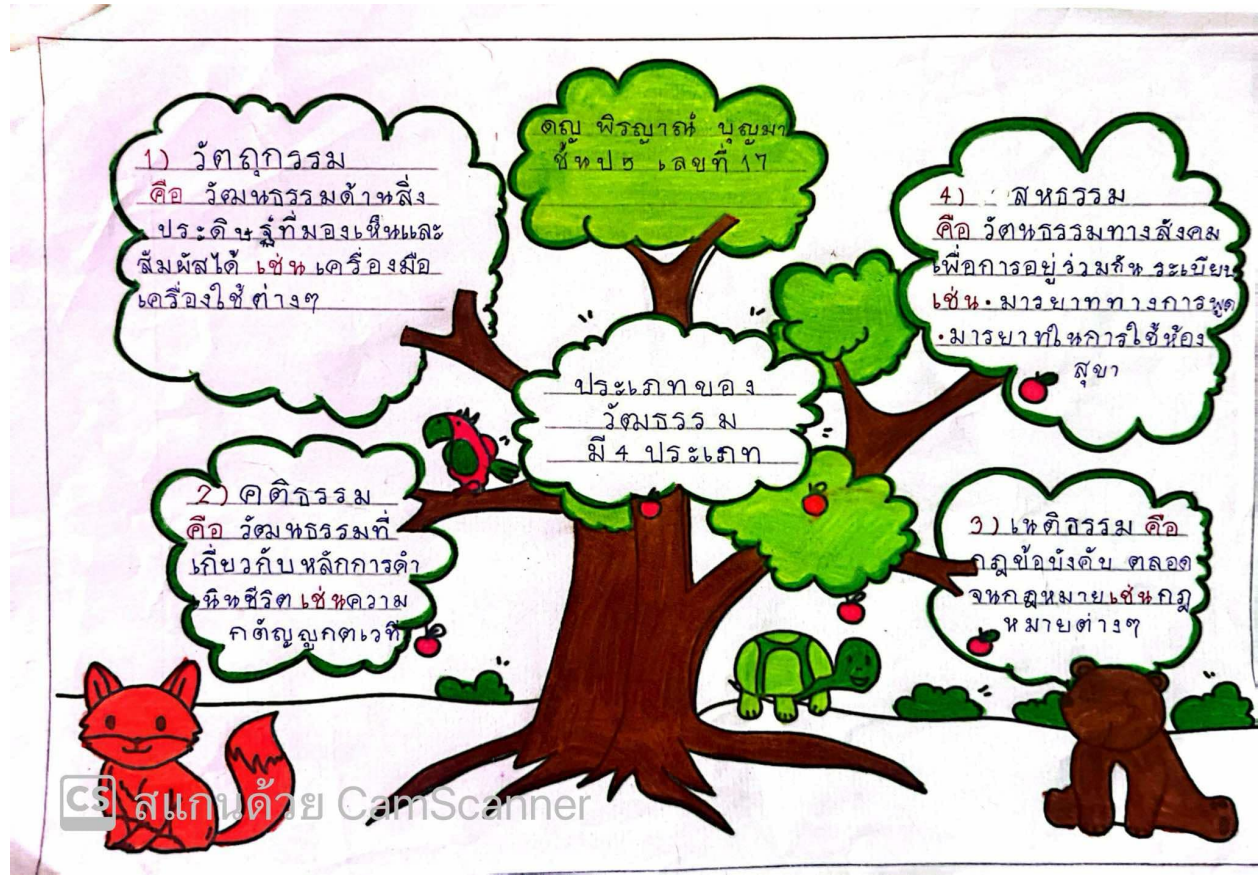 ดญ พิรญาณ์ บุญมา
ชั้นป5 เลขที่ 17
ประเภทของ
วัฒธรรม
มี 4 ประเภท
1) วัตถุกรรม
คือ วัฒนธรรมด้านสิ่ง
ประดิษฐ์ที่มองเห็นและ
สัมผัสได้ เช่น เครื่องมือ
เครื่องใช้ต่างๆ
2) คติธรรม
คือ วัฒนธรรมที่
เกี่ยวกับหลักการดำ
เนินชีวิต เช่นความ
กตัญญูกตเวที
3) เนติธรรม คือ
กฎข้อบังคับ ตลอด
จนกฎหมายเช่นกฎ
หมายต่างๆ
4) สหธรรม
คือ วัตนธรรมทางสังคม
เพื่อการอยู่ร่วมกัน ระเบียบ
เช่น • มารยาททางการพูด
• มารยาทในการใช้ห้อง
สุขา
CS สแกนด้วย CamScanner